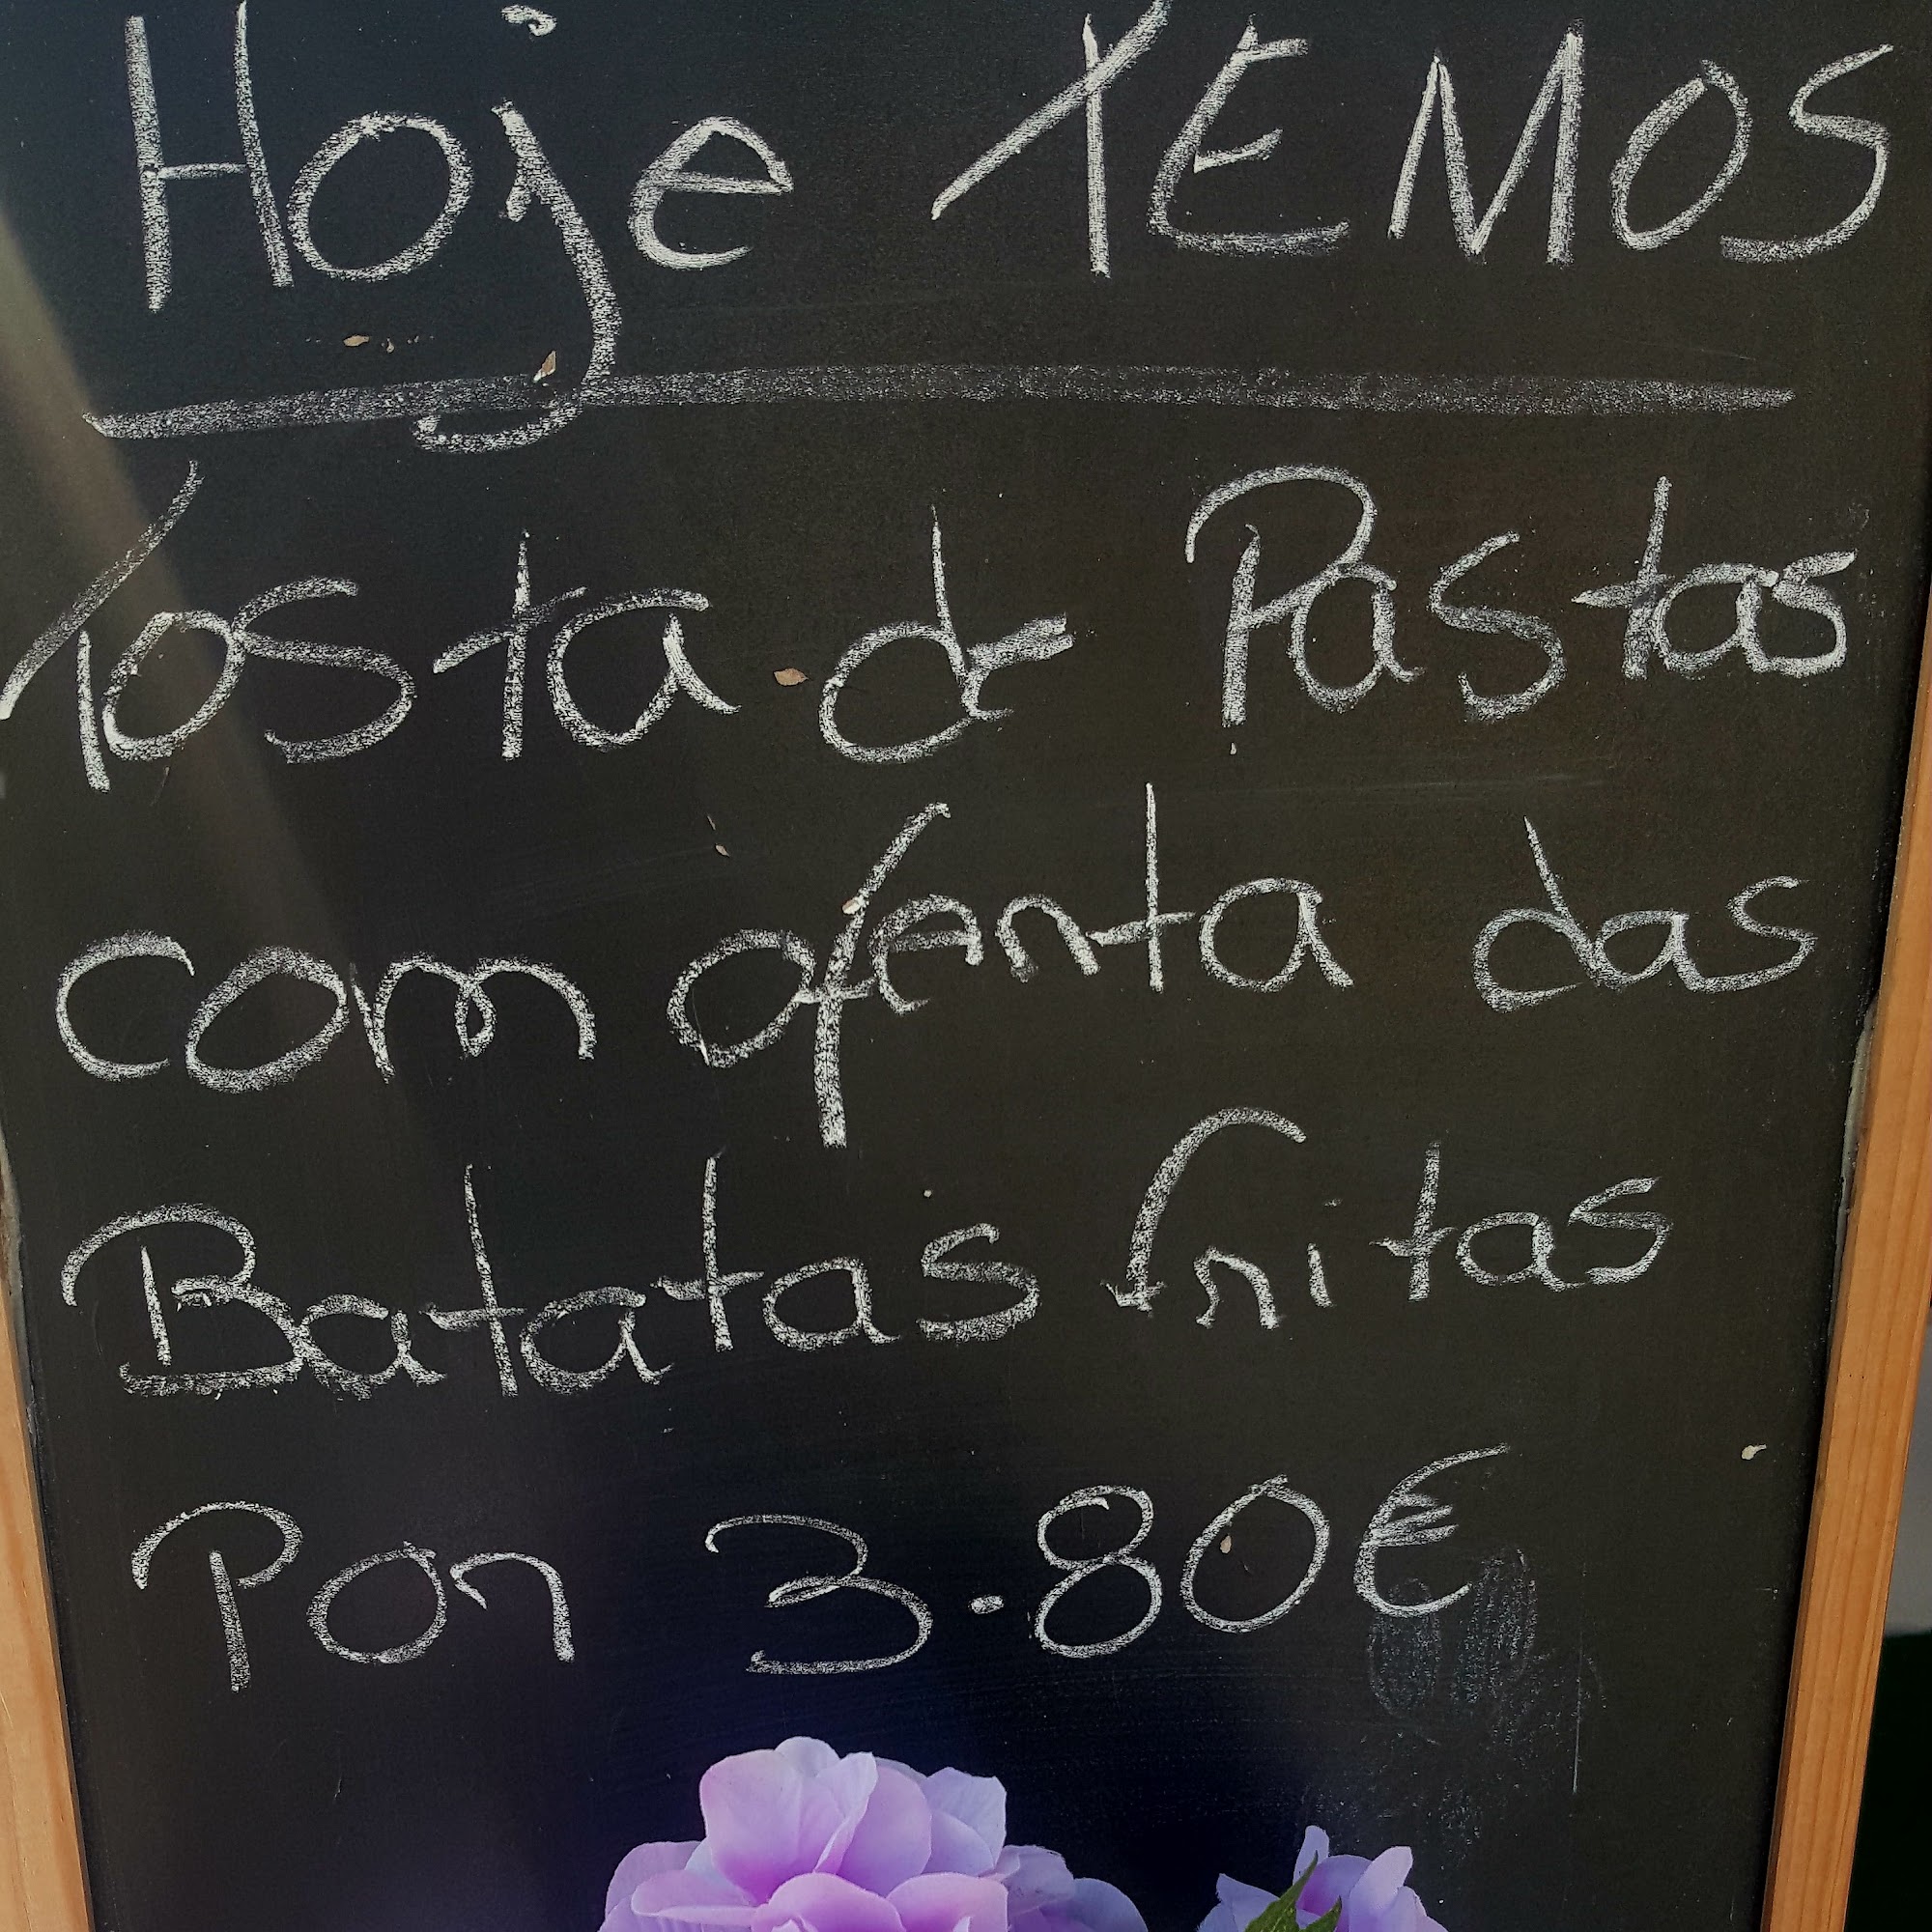 Hoje TEMOS
Tosta de Pastas
com oferta das
Batatas fritas
Por 3.80€